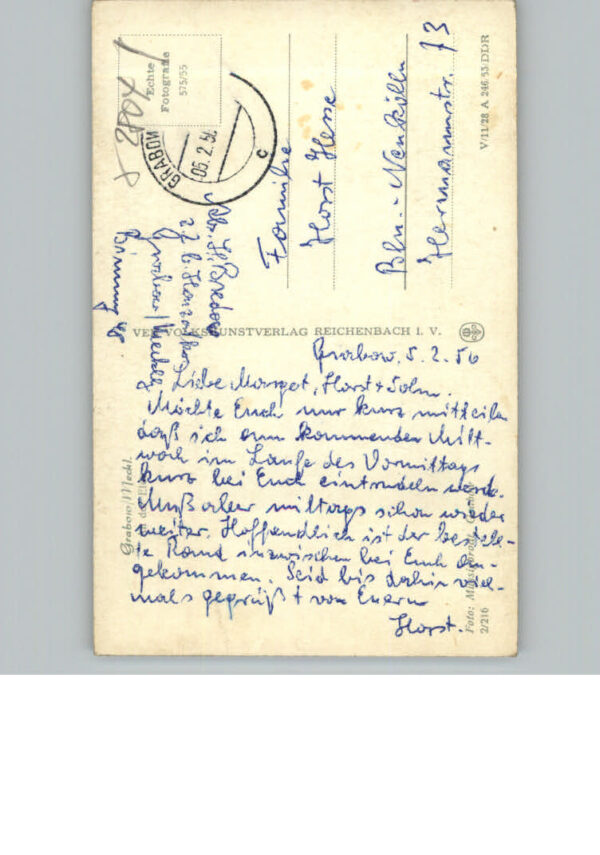 Echte
Fotografie
575/55
GRABOW
05.2.56
c
Familie
Horst Hesse
Bln.-Neukölln
Hermannstr. 73
V/11/28 A 246/55 DDR
Abs. H.
z. Z. b.
Grabow/Meckl.
VEB VOLKSKUNSTVERLAG REICHENBACH I. V.
Grabow, 5.2.56
Liebe Margot, Horst + Sohn.
Möchte Euch nur kurz mitteilen
daß ich am kommenden Mitt-
woch im Laufe des Vormittags
kurz bei Euch eintrudeln werde.
Muß aber mittags schon wieder
weiter. Hoffendlich ist der bestell-
te Rand inzwischen bei Euch an-
gekommen. Seid bis dahin viel-
mals gegrüßt von Euerm
Horst.
Grabow/Meckl.
Foto:
2/216